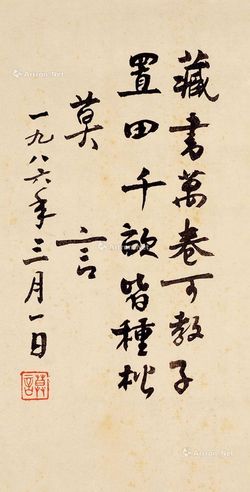 藏書萬卷可教子
置田千畝皆種松
莫言
一九八六年三月一日
莫言